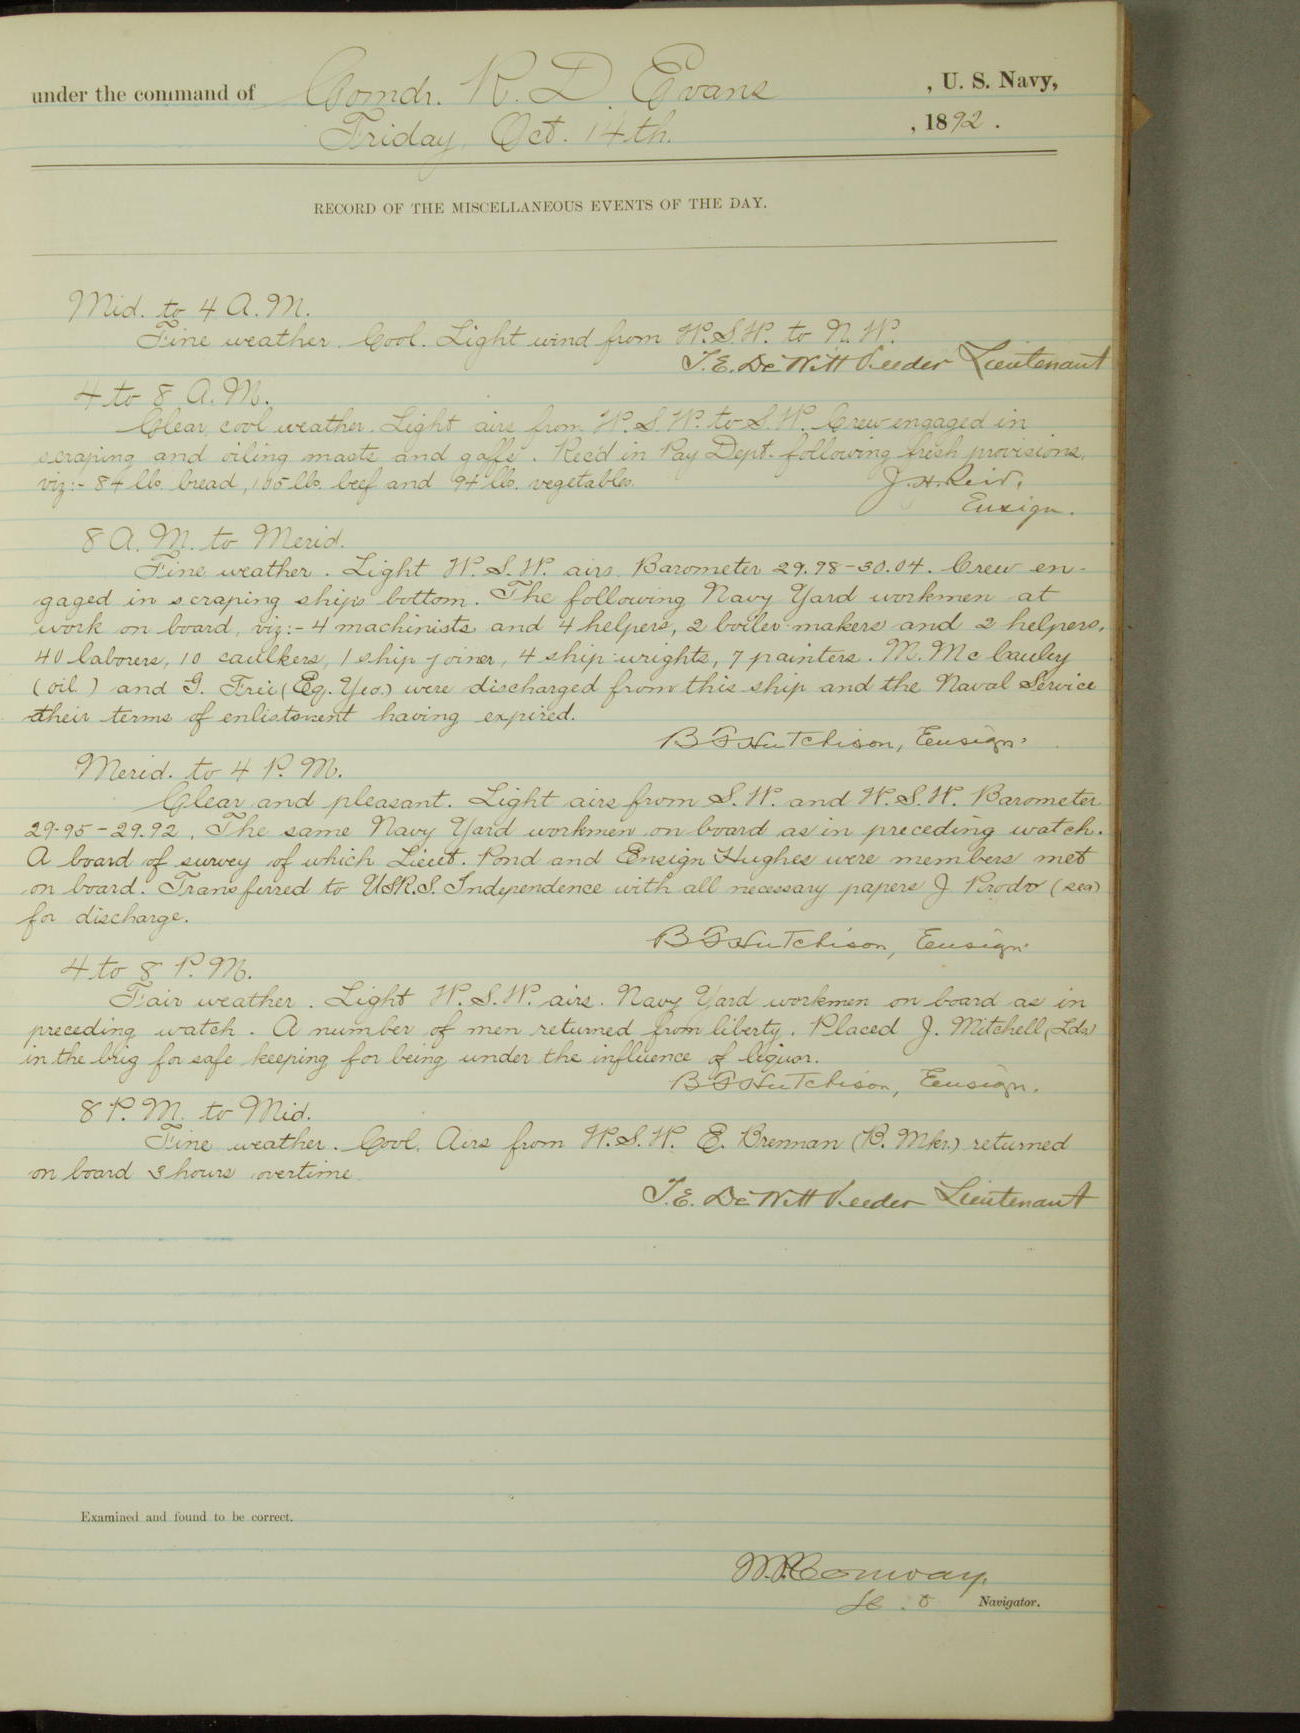 under the command of Comdr. R. D. Evans , U. S. Navy,
Friday, Oct. 14th. , 1892.
RECORD OF THE MISCELLANEOUS EVENTS OF THE DAY.
Mid. to 4 A.M.
Fine weather. Cool. Light wind from W.S.W. to N.W.
T.E. DeWitt Veeder Lieutenant
4 to 8 A.M.
Clear, cool weather. Light airs from W.S.W. to S.W. Crew engaged in
scraping and oiling masts and gaffs. Rec'd in Pay Dept. following fresh provisions,
viz:- 84 lbs. bread, 105 lbs. beef and 94 lbs. vegetables.
J.H. Reid,
Ensign.
8 A.M. to Merid.
Fine weather. Light W.S.W. airs. Barometer 29.98-30.04. Crew en-
gaged in scraping ship's bottom. The following Navy Yard workmen at
work on board, viz:- 4 machinists and 4 helpers, 2 boiler-makers and 2 helpers,
40 laborers, 10 caulkers, 1 ship-joiner, 4 ship-wrights, 7 painters. M. McCauley
(oil.) and G. (Eq. Yeo.) were discharged from this ship and the Naval Service
their terms of enlistment having expired.
B F Hutchison, Ensign.
Merid. to 4 P.M.
Clear and pleasant. Light airs from S.W. and W.S.W. Barometer
29.95-29.92. The same Navy Yard workmen on board as in preceding watch.
A board of survey of which Lieut. Pond and Ensign Hughes were members met
on board. Transferred to U.S.R.S. Independence with all necessary papers J. (sea)
for discharge.
B F Hutchison, Ensign.
4 to 8 P.M.
Fair weather. Light W.S.W. airs. Navy Yard workmen on board as in
preceding watch. A number of men returned from liberty. Placed J. Mitchell (Lds)
in the brig for safe keeping for being under the influence of liquor.
B F Hutchison, Ensign.
8 P.M. to Mid.
Fine weather. Cool. Airs from W.S.W. E. Brennan (B. Mkr.) returned
on board 3 hours overtime.
T.E. DeWitt Veeder Lieutenant
Examined and found to be correct.
W.P. Conway.
Navigator.